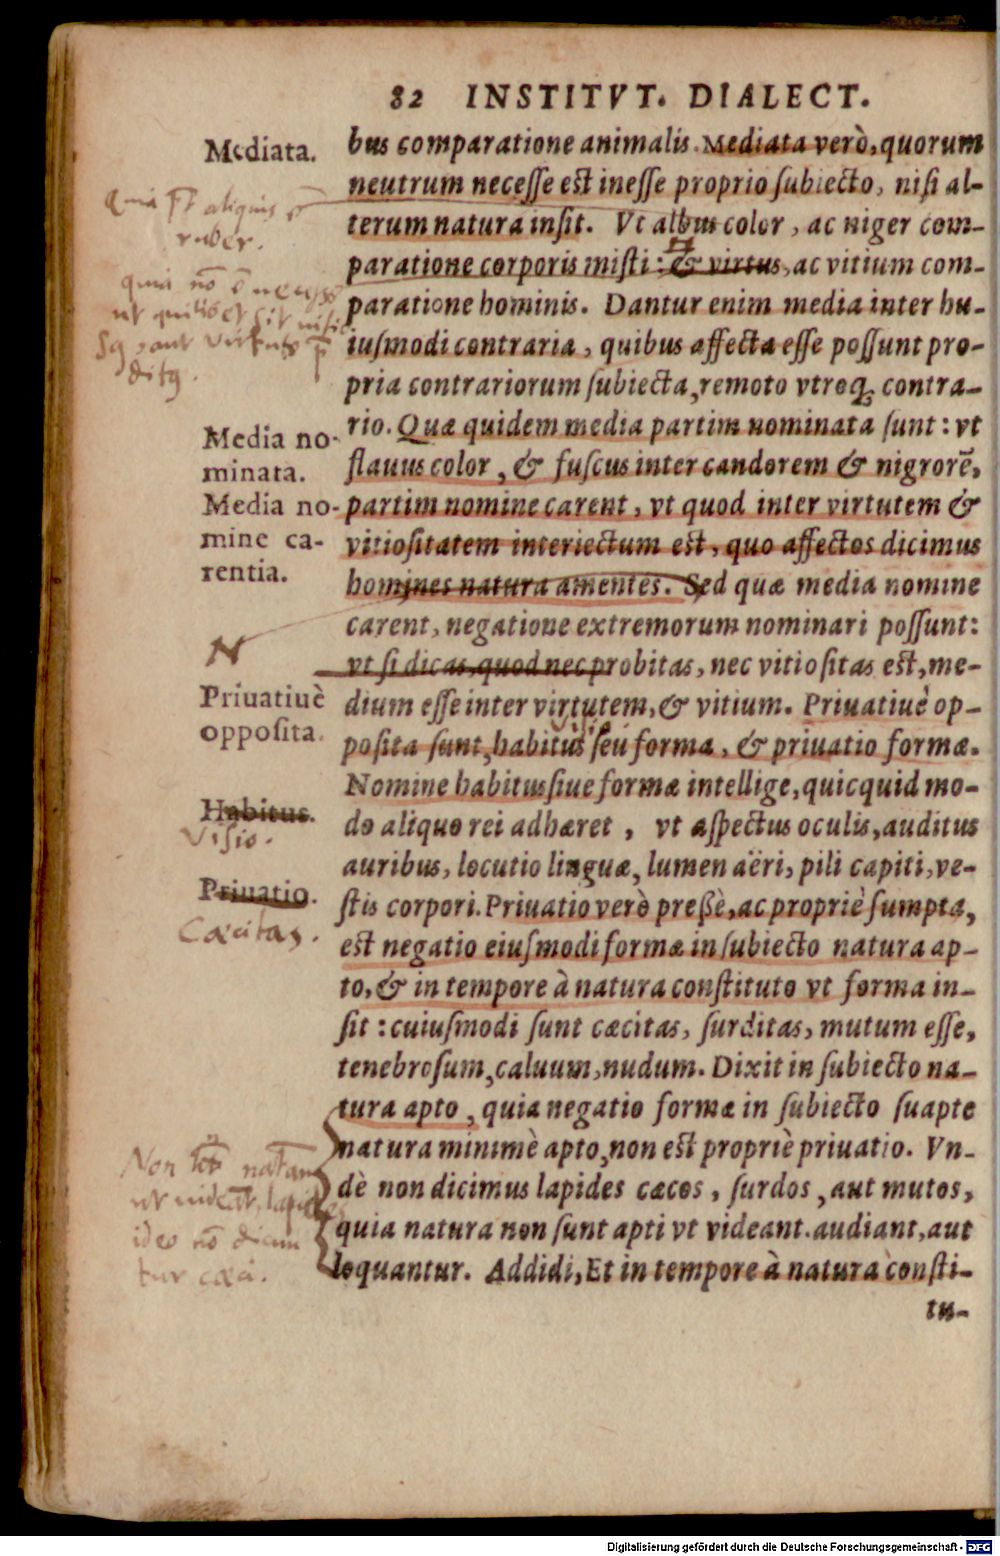 82 INSTITVT. DIALECT.
Mediata.
bus comparatione animalis. Mediata verò, quorum
neutrum necesse est inesse proprio subiecto, nisi al-
terum natura insit. Vt albus color, ac niger com-
paratione corporis misti: & virtus, ac vitium com-
paratione hominis. Dantur enim media inter hu-
iusmodi contraria, quibus affecta esse possunt pro-
pria contrariorum subiecta, remoto vtroq; contra-
rio. Quæ quidem media partim nominata sunt: vt
flauus color, & fuscus inter candorem & nigrorẽ,
partim nomine carent, vt quod inter virtutem &
vitiositatem interiectum est, quo affectos dicimus
homines natura amentes. Sed quæ media nomine
carent, negatione extremorum nominari possunt:
vt si dicas, quod nec probitas, nec vitiositas est, me-
dium esse inter virtutem, & vitium. Priuatiuè op-
posita sunt, habitus seu forma, & priuatio formæ.
Nomine habitus siue formæ intellige, quicquid mo-
do aliquo rei adhæret, vt aspectus oculis, auditus
auribus, locutio linguæ, lumen aëri, pili capiti, ve-
stis corpori. Priuatio verò preßè, ac propriè sumpta,
est negatio eiusmodi formæ in subiecto natura ap-
to, & in tempore à natura constituto vt forma in-
sit: cuiusmodi sunt cæcitas, surditas, mutum esse,
tenebrosum, caluum, nudum. Dixit in subiecto na-
tura apto, quia negatio formæ in subiecto suapte
natura minimè apto, non est propriè priuatio. Vn-
dè non dicimus lapides cæcos, surdos, aut mutos,
quia natura non sunt apti vt videant. audiant, aut
loquantur. Addidi, Et in tempore à natura consti-
tu-
aliquis
ruber.
quia nō
Media no-
minata.
Media no-
mine ca-
rentia.
N
Priuatiuè
opposita.
Habitus.
Visio.
Priuatio.
Cæcitas.
Non
lapides
ideo nō dicun
tur cæci.
Digitalisierung gefördert durch die Deutsche Forschungsgemeinschaft - DFG